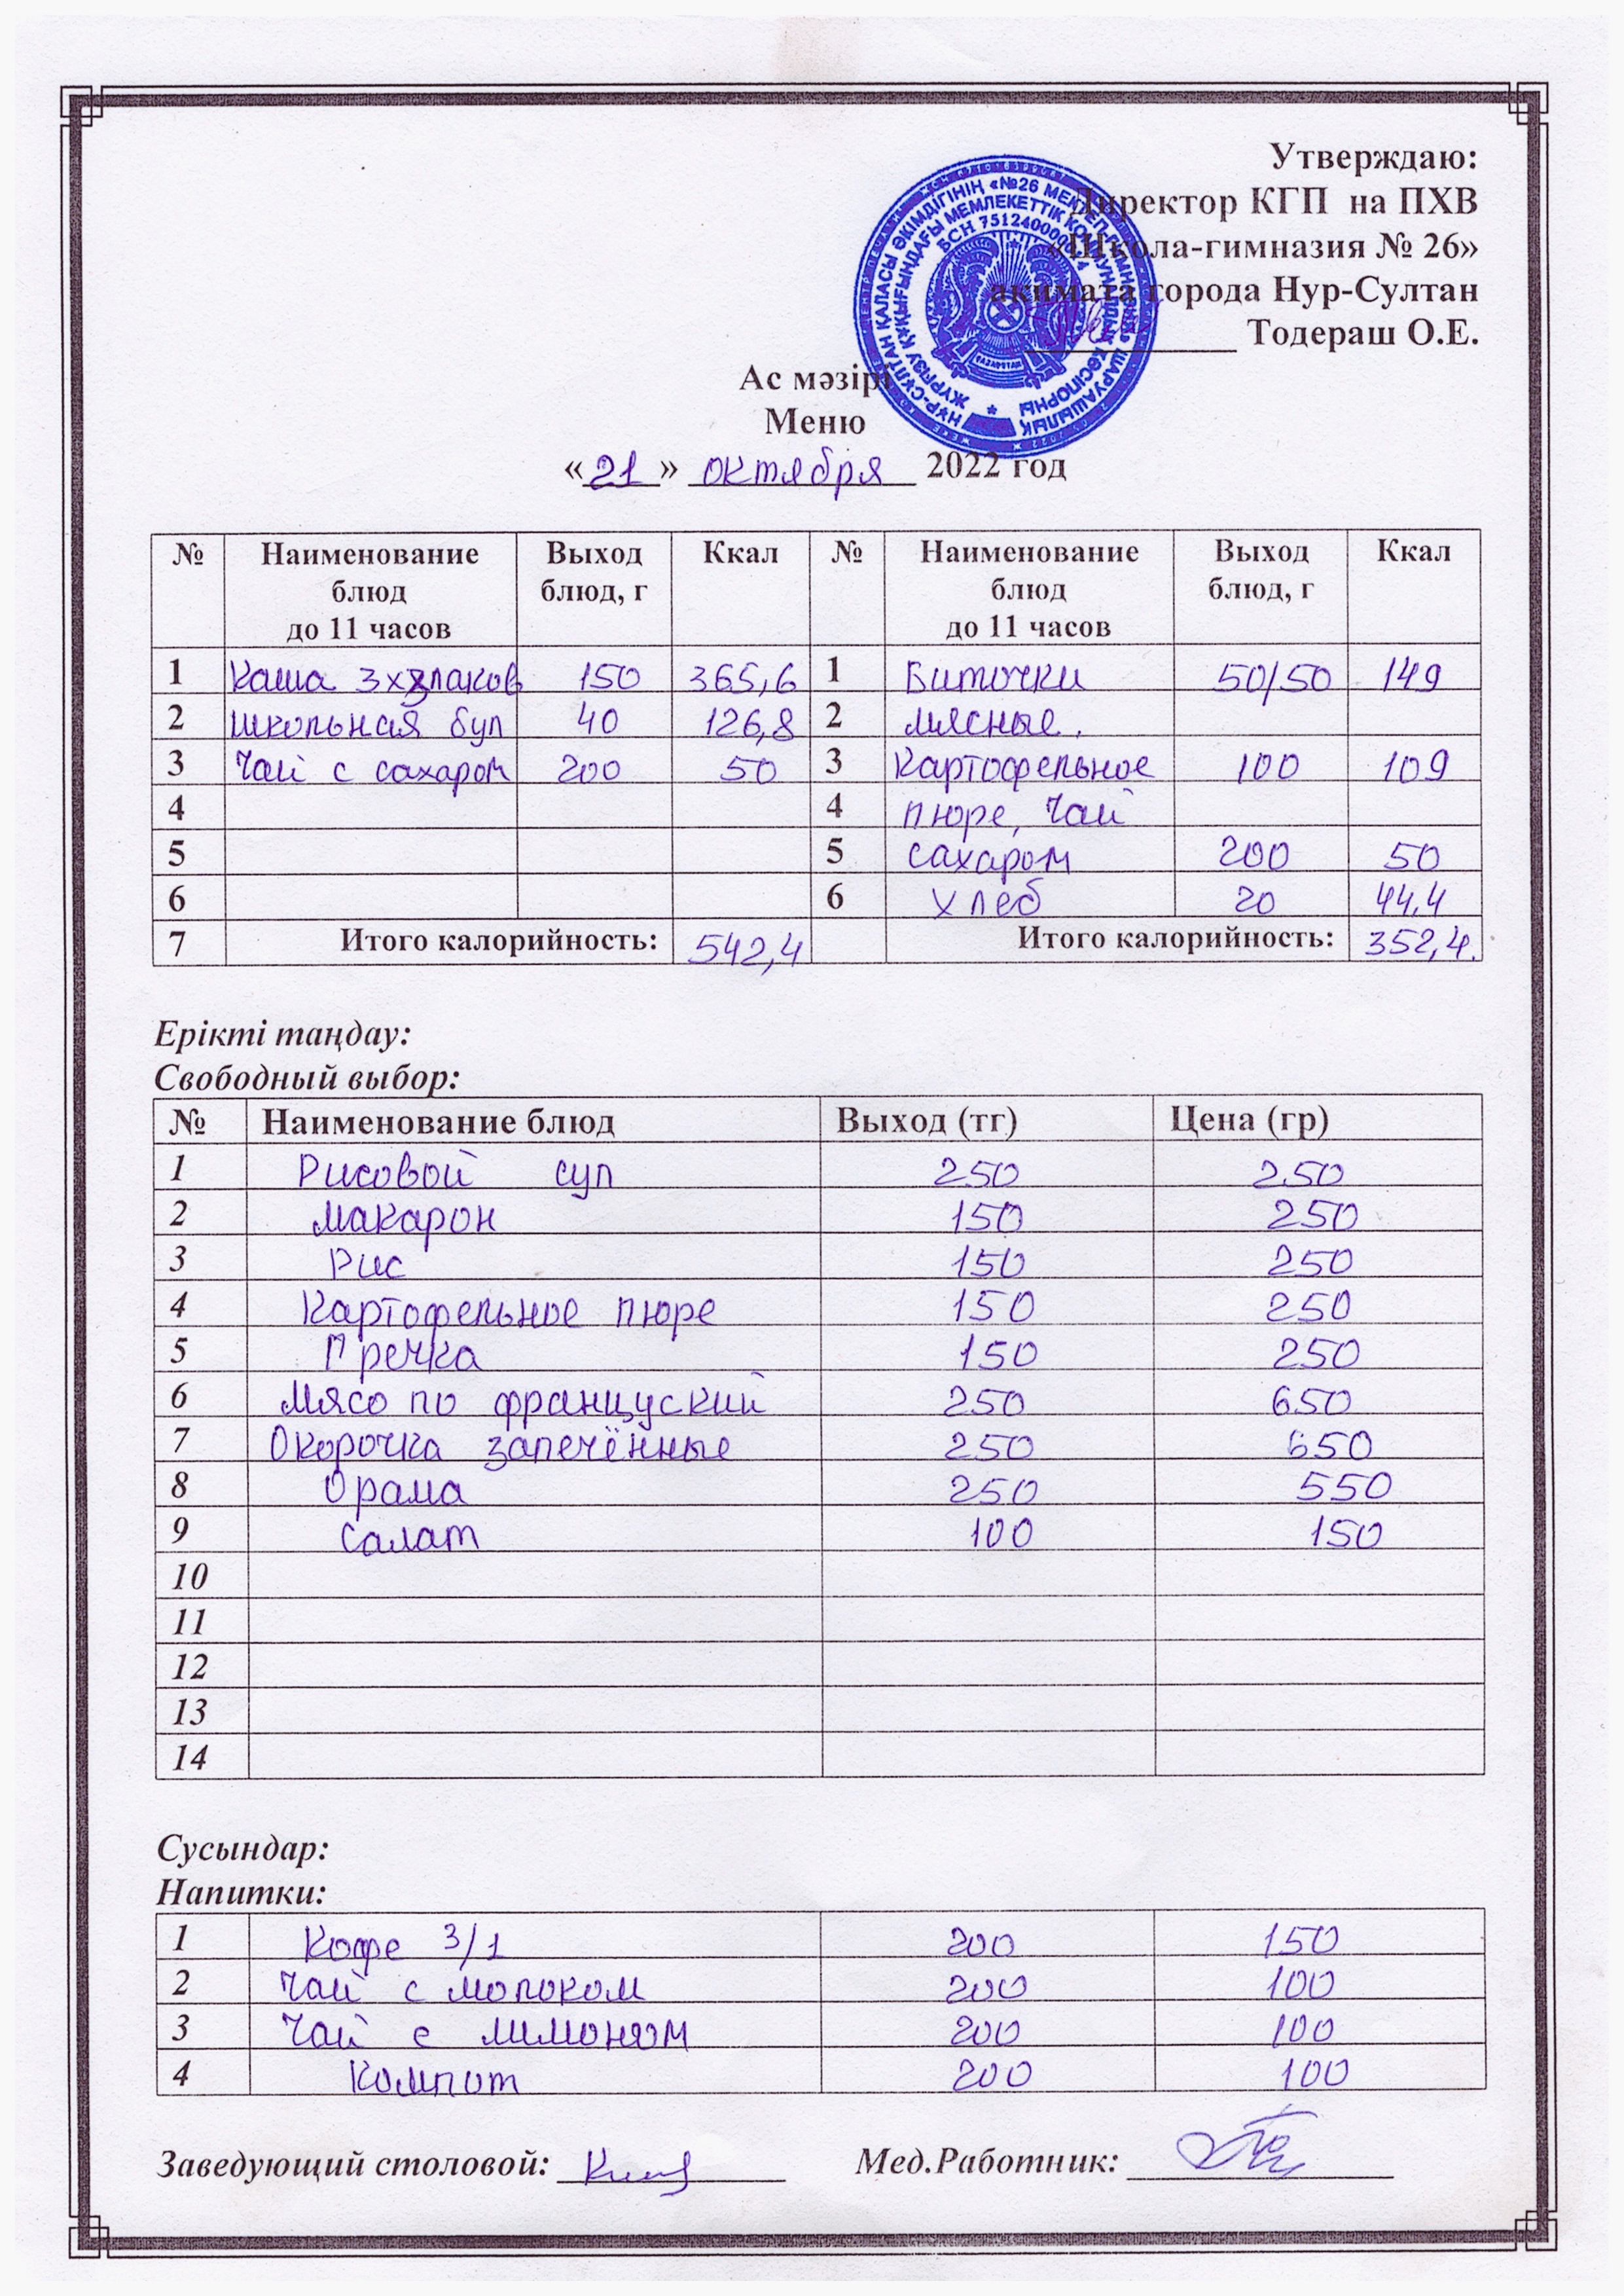 Утверждаю:
Директор КГП на ПХВ
«Школа-гимназия № 26»
акимата города Нур-Султан
Тодераш О.Е.
Ас мәзірі
Меню
«21» октября 2022 год
№ Наименование блюд до 11 часов Выход блюд, г Ккал № Наименование блюд до 11 часов Выход блюд, г Ккал
1 Каша 3х злаков 150 365,6 1 Биточки 50/50 149
2 школьная бул 40 126,8 2 мясные.
3 Чай с сахаром 200 50 3 Картофельное 100 109
4 4 пюре, Чай
5 5 сахаром 200 50
6 6 хлеб 20 44,4
7 Итого калорийность: 542,4 Итого калорийность: 352,4.
Ерікті таңдау:
Свободный выбор:
№ Наименование блюд Выход (тг) Цена (гр)
1 Рисовой суп 250 250
2 макарон 150 250
3 Рис 150 250
4 Картофельное пюре 150 250
5 Гречка 150 250
6 Мясо по француский 250 650
7 Окорочка запечённые 250 650
8 Орама 250 550
9 Салат 100 150
10
11
12
13
14
Сусындар:
Напитки:
1 Кофе 3/1 200 150
2 Чай с молоком 200 100
3 Чай с лимоном 200 100
4 Компот 200 100
Заведующий столовой: Мед.Работник: